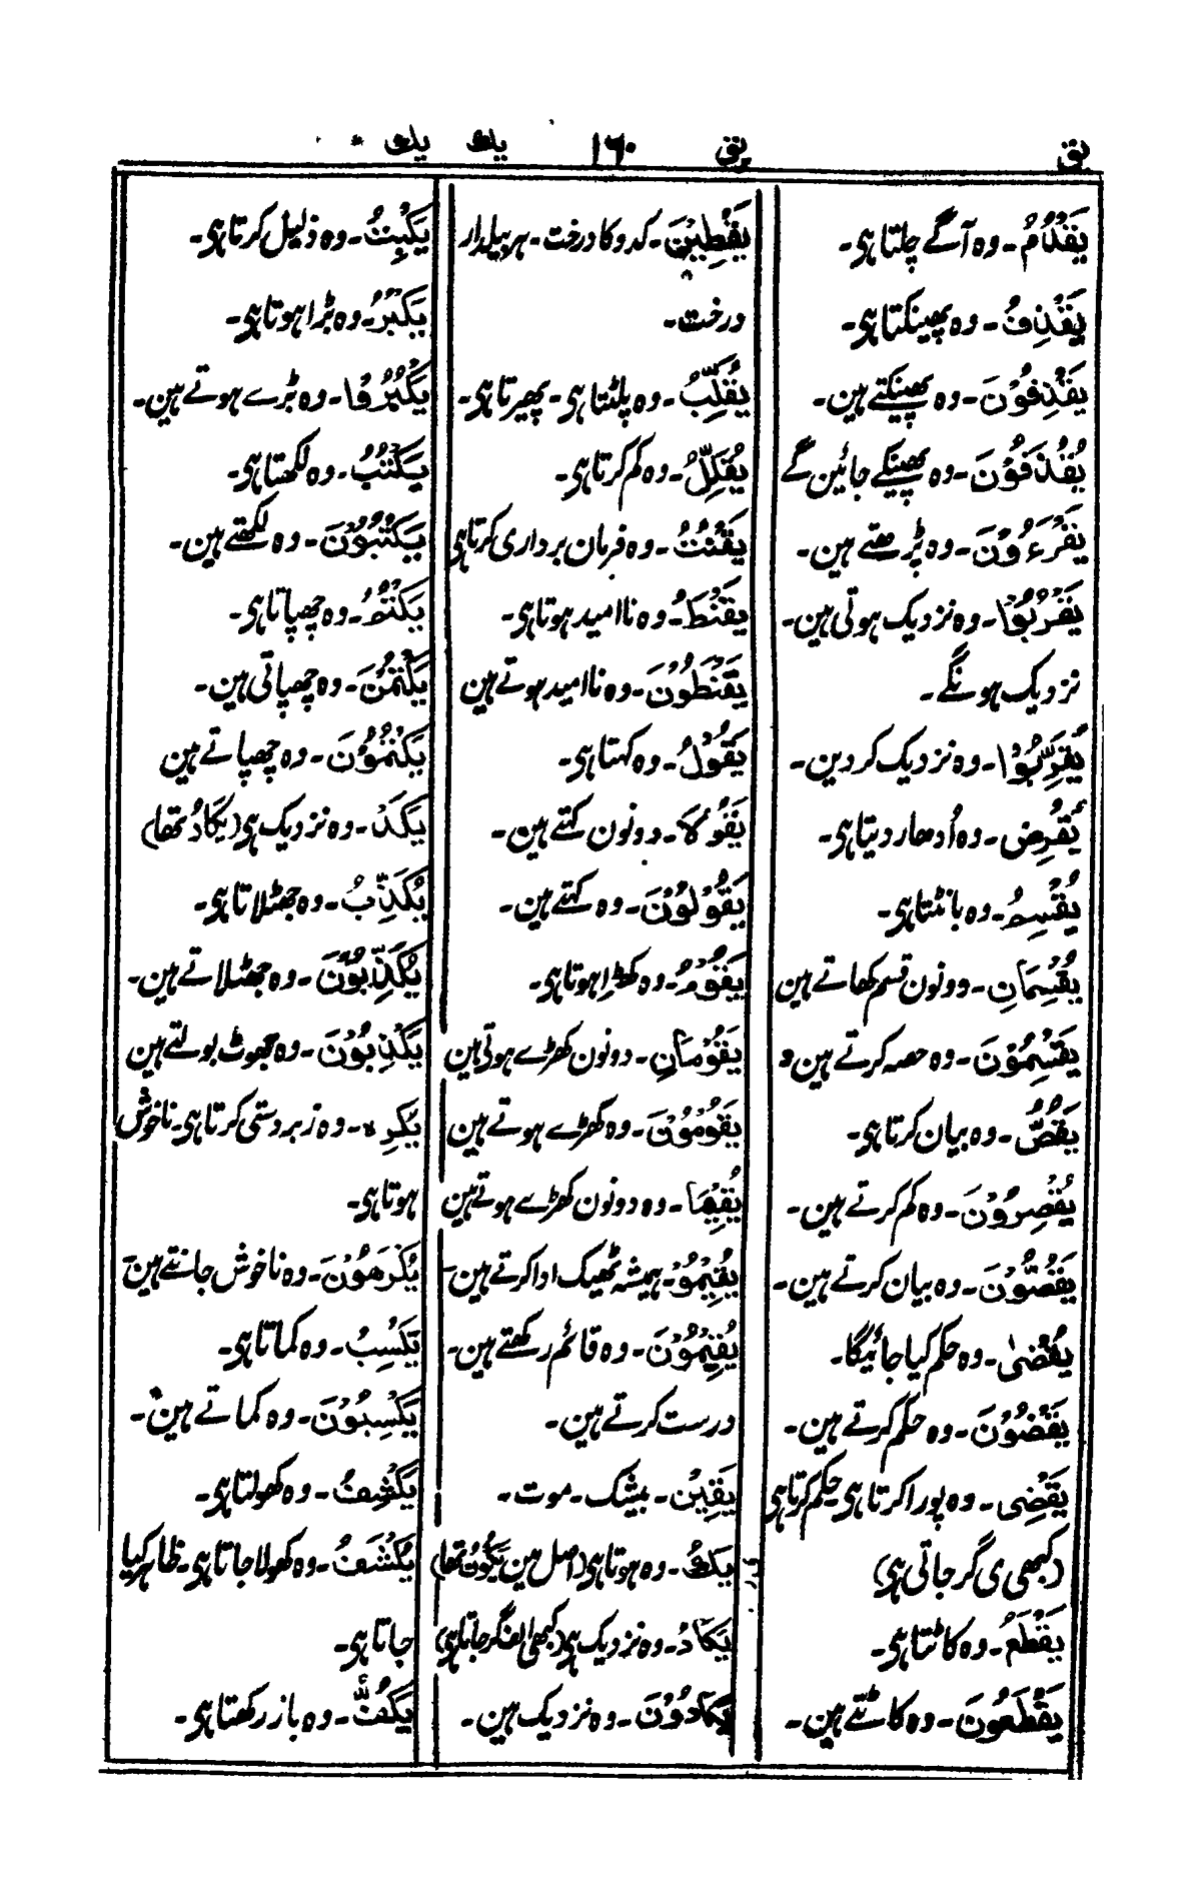 یق یق ۱۶۰ یك یك
یَقْدُمُ۔ وہ آگے چلتا ہی۔
یَقْذِفُ۔ وہ پھینکتا ہی۔
یَقْذِفُوْنَ۔ وہ پھینکتے ہین۔
یُقْذَفُوْنَ۔ وہ پھینکے جائین گے
یَقْرَءُوْنَ۔ وہ پڑھتے ہین۔
یَقْرَبُوْا۔ وہ نزدیک ہوتی ہین۔
نزدیک ہونگے۔
یُقَرِّبُوْا۔ وہ نزدیک کردین۔
یُقْرِضُ۔ وہ اُدھار دیتا ہی۔
یُقْسِمُ۔ وہ بانٹتا ہی۔
یُقْسِمَانِ۔ دونون قسم کھاتے ہین
یَقْسِمُوْنَ۔ وہ حصہ کرتے ہین۔
یَقُصُّ۔ وہ بیان کرتا ہی۔
یُقْصِرُوْنَ۔ وہ کم کرتے ہین۔
یَقُصُّوْنَ۔ وہ بیان کرتے ہین۔
یُقْضٰی۔ وہ حکم کیا جائیگا۔
یَقْضُوْنَ۔ وہ حکم کرتے ہین۔
یَقْضِی۔ وہ پورا کرتا ہی حکم کرتا ہی
(کبھی ی گر جاتی ہی)
یَقْطَعُ۔ وہ کاٹتا ہی۔
یَقْطَعُوْنَ۔ وہ کاٹتے ہین۔
یَقْطِیْنَ۔ کدو کا درخت۔ ہر بیلدار
درخت۔
یُقَلِّبُ۔ وہ پلٹتا ہی۔ پھیرتا ہی۔
یُقَلِّلُ۔ وہ کم کرتا ہی۔
یَقْنُتُ۔ وہ فرمان برداری کرتا ہی
یَقْنَطُ۔ وہ ناامید ہوتا ہی۔
یَقْنَطُوْنَ۔ وہ ناامید ہوتے ہین
یَقُوْلُ۔ وہ کہتا ہی۔
یَقُوْلَا۔ دونون کہتے ہین۔
یَقُوْلُوْنَ۔ وہ کہتے ہین۔
یَقُوْمُ۔ وہ کھڑا ہوتا ہی۔
یَقُوْمَانِ۔ دونون کھڑے ہوتی ہین
یَقُوْمُوْنَ۔ وہ کھڑے ہوتے ہین
یُقِیْمَا۔ وہ دونون کھڑے ہوتے ہین
یُقِیْمُوْ۔ ہمیشہ ٹھیک ادا کرتے ہین۔
یُقِیْمُوْنَ۔ وہ قائم رکھتے ہین۔
درست کرتے ہین۔
یَقِیْن۔ بیشک۔ موت۔
یَكُ۔ وہ ہوتا ہی (اصل مین یَكُوْنُ تھا)
یَكَادُ۔ وہ نزدیک ہی (کبھی الف گر جاتا ہی)
یَكَادُوْنَ۔ وہ نزدیک ہین۔
یَكْبِتُ۔ وہ ذلیل کرتا ہی۔
یَكْبُرُ۔ وہ بڑا ہوتا ہی۔
یَكْبُرُوْا۔ وہ بڑے ہوتے ہین۔
یَكْتُبُ۔ وہ لکھتا ہی۔
یَكْتُبُوْنَ۔ وہ لکھتے ہین۔
یَكْتُمُ۔ وہ چھپاتا ہی۔
یَكْتُمْنَ۔ وہ چھپاتی ہین۔
یَكْتُمُوْنَ۔ وہ چھپاتے ہین
یَكَدْ۔ وہ نزدیک ہی (یَكَادُ تھا)
یُكَذِّبُ۔ وہ جھٹلاتا ہی۔
یُكَذِّبُوْنَ۔ وہ جھٹلاتے ہین۔
یَكْذِبُوْنَ۔ وہ جھوٹ بولتے ہین
یُكْرِہ۔ وہ زبردستی کرتا ہی۔ ناخوش
ہوتا ہی۔
یَكْرَهُوْنَ۔ وہ ناخوش جانتے ہین
یَكْسِبُ۔ وہ کماتا ہی۔
یَكْسِبُوْنَ۔ وہ کماتے ہین۔
یَكْشِفُ۔ وہ کھولتا ہی۔
یُكْشَفُ۔ وہ کھولا جاتا ہی۔ ظاہر کیا
جاتا ہی۔
یَكُفُّ۔ وہ باز رکھتا ہی۔